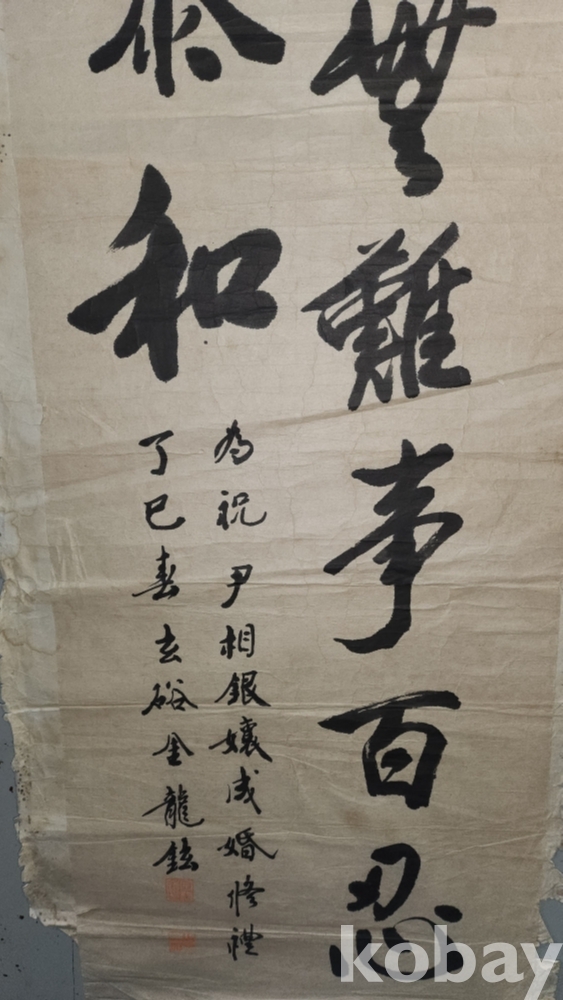 無難事百忍
泰和
為祝尹相銀孃成婚修禮
丁巳春玄谿金龍鉉
kobay